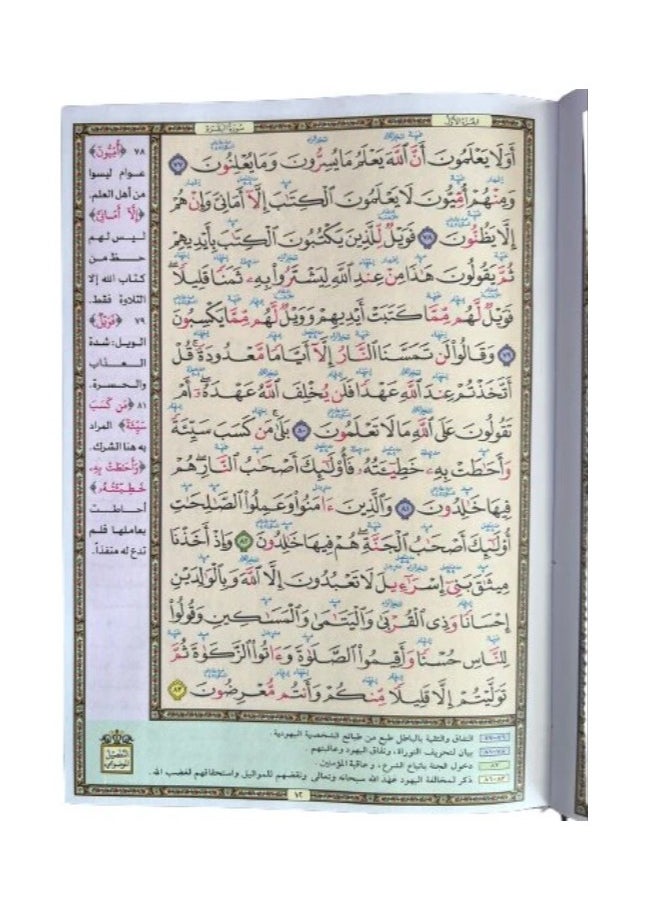 الجزء الأول
سورة البقرة
أَوَلَا يَعْلَمُونَ أَنَّ اللَّهَ يَعْلَمُ مَا يُسِرُّونَ وَمَا يُعْلِنُونَ ٧٧
وَمِنْهُمْ أُمِّيُّونَ لَا يَعْلَمُونَ الْكِتَٰبَ إِلَّآ أَمَانِيَّ وَإِنْ هُمْ
إِلَّا يَظُنُّونَ ٧٨ فَوَيْلٌ لِّلَّذِينَ يَكْتُبُونَ الْكِتَٰبَ بِأَيْدِيهِمْ
ثُمَّ يَقُولُونَ هَٰذَا مِنْ عِندِ اللَّهِ لِيَشْتَرُوا۟ بِهِۦ ثَمَنًا قَلِيلًا ۖ
فَوَيْلٌ لَّهُم مِّمَّا كَتَبَتْ أَيْدِيهِمْ وَوَيْلٌ لَّهُم مِّمَّا يَكْسِبُونَ
٧٩ وَقَالُوا۟ لَن تَمَسَّنَا النَّارُ إِلَّآ أَيَّامًا مَّعْدُودَةً ۚ قُلْ
أَتَّخَذْتُمْ عِندَ اللَّهِ عَهْدًا فَلَن يُخْلِفَ اللَّهُ عَهْدَهُۥٓ ۖ أَمْ
تَقُولُونَ عَلَى اللَّهِ مَا لَا تَعْلَمُونَ ٨٠ بَلَىٰ مَن كَسَبَ سَيِّئَةً
وَأَحَٰطَتْ بِهِۦ خَطِيٓـَٔتُهُۥ فَأُو۟لَٰٓئِكَ أَصْحَٰبُ النَّارِ ۖ هُمْ
فِيهَا خَٰلِدُونَ ٨١ وَالَّذِينَ ءَامَنُوا۟ وَعَمِلُوا۟ الصَّٰلِحَٰتِ
أُو۟لَٰٓئِكَ أَصْحَٰبُ الْجَنَّةِ ۖ هُمْ فِيهَا خَٰلِدُونَ ٨٢ وَإِذْ أَخَذْنَا
مِيثَٰقَ بَنِىٓ إِسْرَٰٓءِيلَ لَا تَعْبُدُونَ إِلَّا اللَّهَ وَبِالْوَٰلِدَيْنِ
إِحْسَانًا وَذِى الْقُرْبَىٰ وَالْيَتَٰمَىٰ وَالْمَسَٰكِينِ وَقُولُوا۟
لِلنَّاسِ حُسْنًا وَأَقِيمُوا۟ الصَّلَوٰةَ وَءَاتُوا۟ الزَّكَوٰةَ ثُمَّ
تَوَلَّيْتُمْ إِلَّا قَلِيلًا مِّنكُمْ وَأَنتُم مُّعْرِضُونَ ٨٣
٧٨ ﴿أُمِّيُّونَ﴾
عوام ليسوا
من أهل العلم.
﴿إِلَّآ أَمَانِيَّ﴾
ليس لهم
حظ من
كتاب الله إلا
التلاوة فقط.
٧٩ ﴿فَوَيْلٌ﴾
الويل: شدة
العذاب
والحسرة.
٨١ ﴿مَن كَسَبَ
سَيِّئَةً﴾ المراد
به هنا الشرك.
﴿وَأَحَٰطَتْ بِهِۦ
خَطِيٓـَٔتُهُۥ﴾
أحاطت
بعاملها فلم
تدع له منفذاً.
٧٦-٧٧ النفاق والتقية بالباطل طبع من طبائع الشخصية اليهودية.
بيان لتحريف التوراة، ونفاق اليهود وعاقبتهم.
٨٢ دخول الجنة باتباع الشرع، وعاقبة المؤمنين.
ذكر لمخالفة اليهود عهد الله سبحانه وتعالى ونقضهم للمواثيق واستحقاقهم لغضب الله.
التفصيل
الموضوعي
١٢